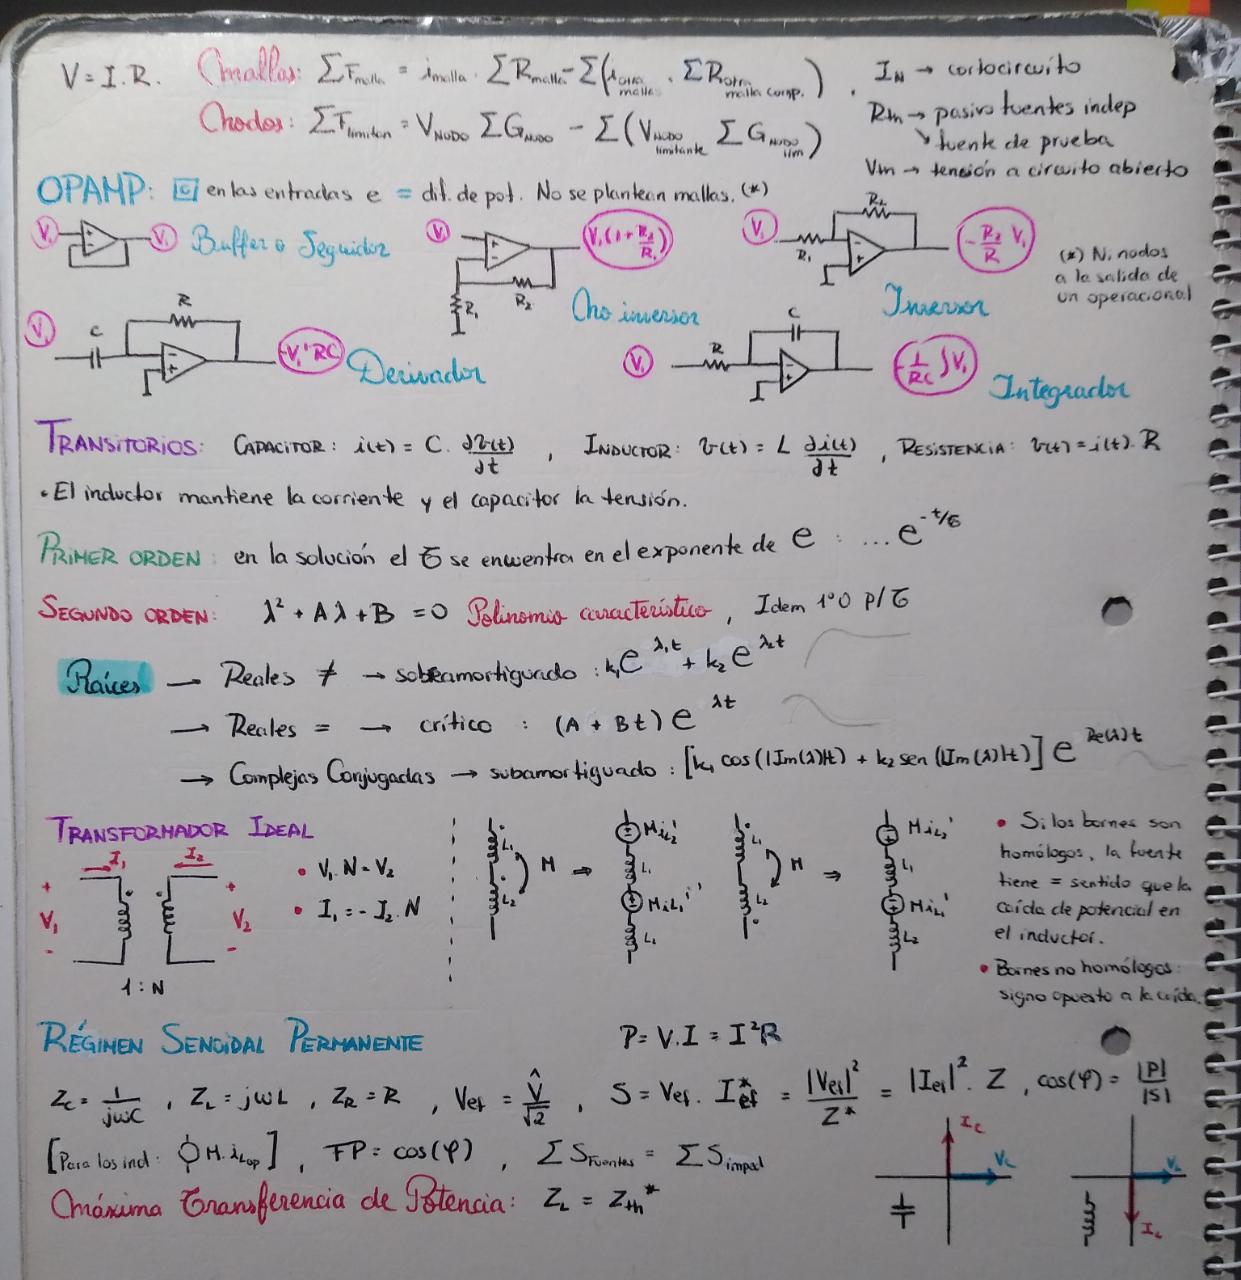 V = I.R. Mallas: ΣF malla = i malla . ΣR malla - Σ(i otra malla . ΣR otra malla comp.) . I_N → cortocircuito
Nodos: ΣF limitan = V NODO ΣG NODO - Σ(V NODO limitante ΣG NODO lim) Rth → pasivo fuentes indep
↘ fuente de prueba
Vth → tensión a circuito abierto
OPAMP: en las entradas e = dif. de pot. No se plantean mallas. (*)
V₁ V₁ Buffer o Seguidor V₁ V₁(1+R₂/R₁) R₂ R₁ No inversor V₁ R₁ R₂ -R₂/R V₁ Inversor
(*) Ni nodos
a la salida de
un operacional
V₁ C R -V₁'RC Derivador V₁ R C -1/RC ∫V₁ Integrador
TRANSITORIOS: CAPACITOR: i(t) = C. ∂v(t)/∂t , INDUCTOR: v(t) = L ∂i(t)/∂t , RESISTENCIA: v(t) = i(t). R
• El inductor mantiene la corriente y el capacitor la tensión.
PRIMER ORDEN: en la solución el τ se encuentra en el exponente de e : ... e^(-t/τ)
SEGUNDO ORDEN: λ² + Aλ + B = 0 Polinomio característico, Idem 1°O p/τ
Raíces → Reales ≠ → sobreamortiguado: k₁e^(λ₁t) + k₂e^(λ₂t)
→ Reales = → crítico : (A + Bt) e^(λt)
→ Complejas Conjugadas → subamortiguado: [k₁ cos(|Im(λ)|t) + k₂ sen(|Im(λ)|t)] e^(Re(λ)t)
TRANSFORMADOR IDEAL
I₁ I₂
+ V₁ - + V₂ -
1 : N
• V₁.N = V₂
• I₁ = - I₂.N
L₁ L₂ M ⇒ M iL₂' L₁ M iL₁' L₂
L₁ L₂ M ⇒ M iL₂' L₁ M iL₁' L₂
• Si los bornes son
homólogos, la fuente
tiene = sentido que la
caída de potencial en
el inductor.
• Bornes no homólogos:
signo opuesto a la caída.
RÉGIMEN SENOIDAL PERMANENTE P = V.I = I²R
Zc = 1/jωC , Z_L = jωL , Z_R = R , Vef = V̂/√2 , S = Vef . I*ef = |Vef|²/Z* = |Ief|² . Z , cos(φ) = |P|/|S|
[Para los ind: M.iLop] , FP = cos(φ) , ΣS Fuentes = ΣS imped
Máxima Transferencia de Potencia: Z_L = Zth*
Ic Vc
V_L I_L